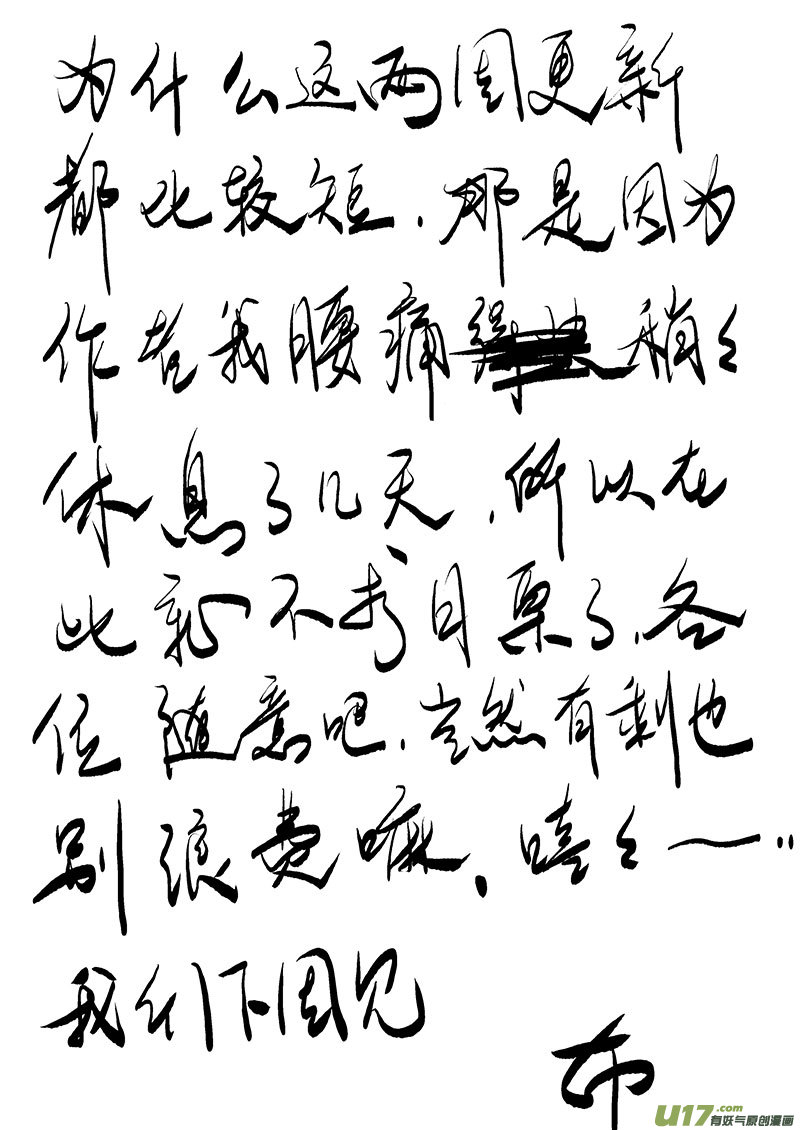 为什么这两周更新
都比较短.那是因为
作者我腰痛稍々
休息了几天,所以在
此就不求月票了.各
位随意吧.当然有剩也
别浪费嘛、嘻々~..
我们下周见
布
U17.com
有妖气原创漫画